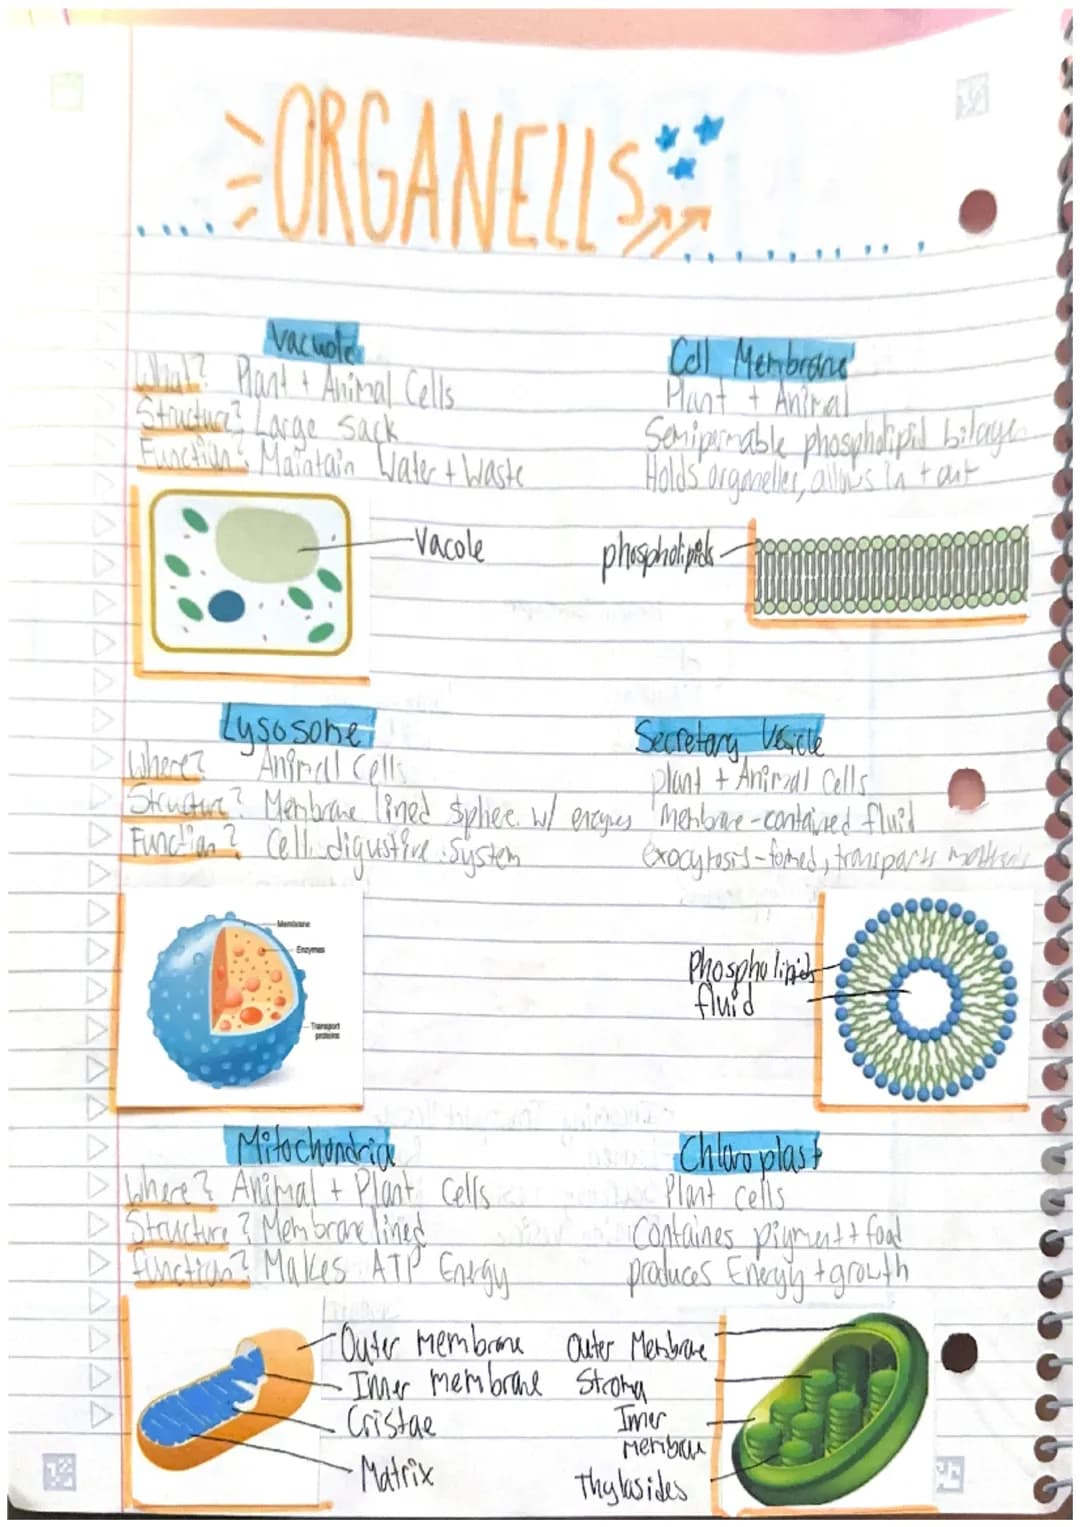 ORGANELLS
Vacuole
What? Plant + Animal Cells
Structure? Large sack
Function? Maintain Water + Waste
Vacole
Cell Membrane
Plant + Animal
Semipermable phospholipid bilayer
Holds organelles, allows in + out
phospholipids
Lysosome
Where? Animal Cells
Structure? Membrane lined sphee w/ enzymes
Function? Cell digustive System
Membrane
Enzymes
Transport
proteins
Secretary Vesicle
plant + Animal Cells
Membrane-contained fluid
exocytosis-formed, transports
Phospholipids
fluid
Mitochondria
Where? Animal + Plant Cells
Structure? Membrane lined
Function? Makes ATP Energy
Outer membrane
Inner membrane
Cristae
Matrix
Chloroplast
Plant cells
Containes pigment + food
produces Energy + growth
Outer Membrane
Stroma
Inner
Membrane
Thylasides